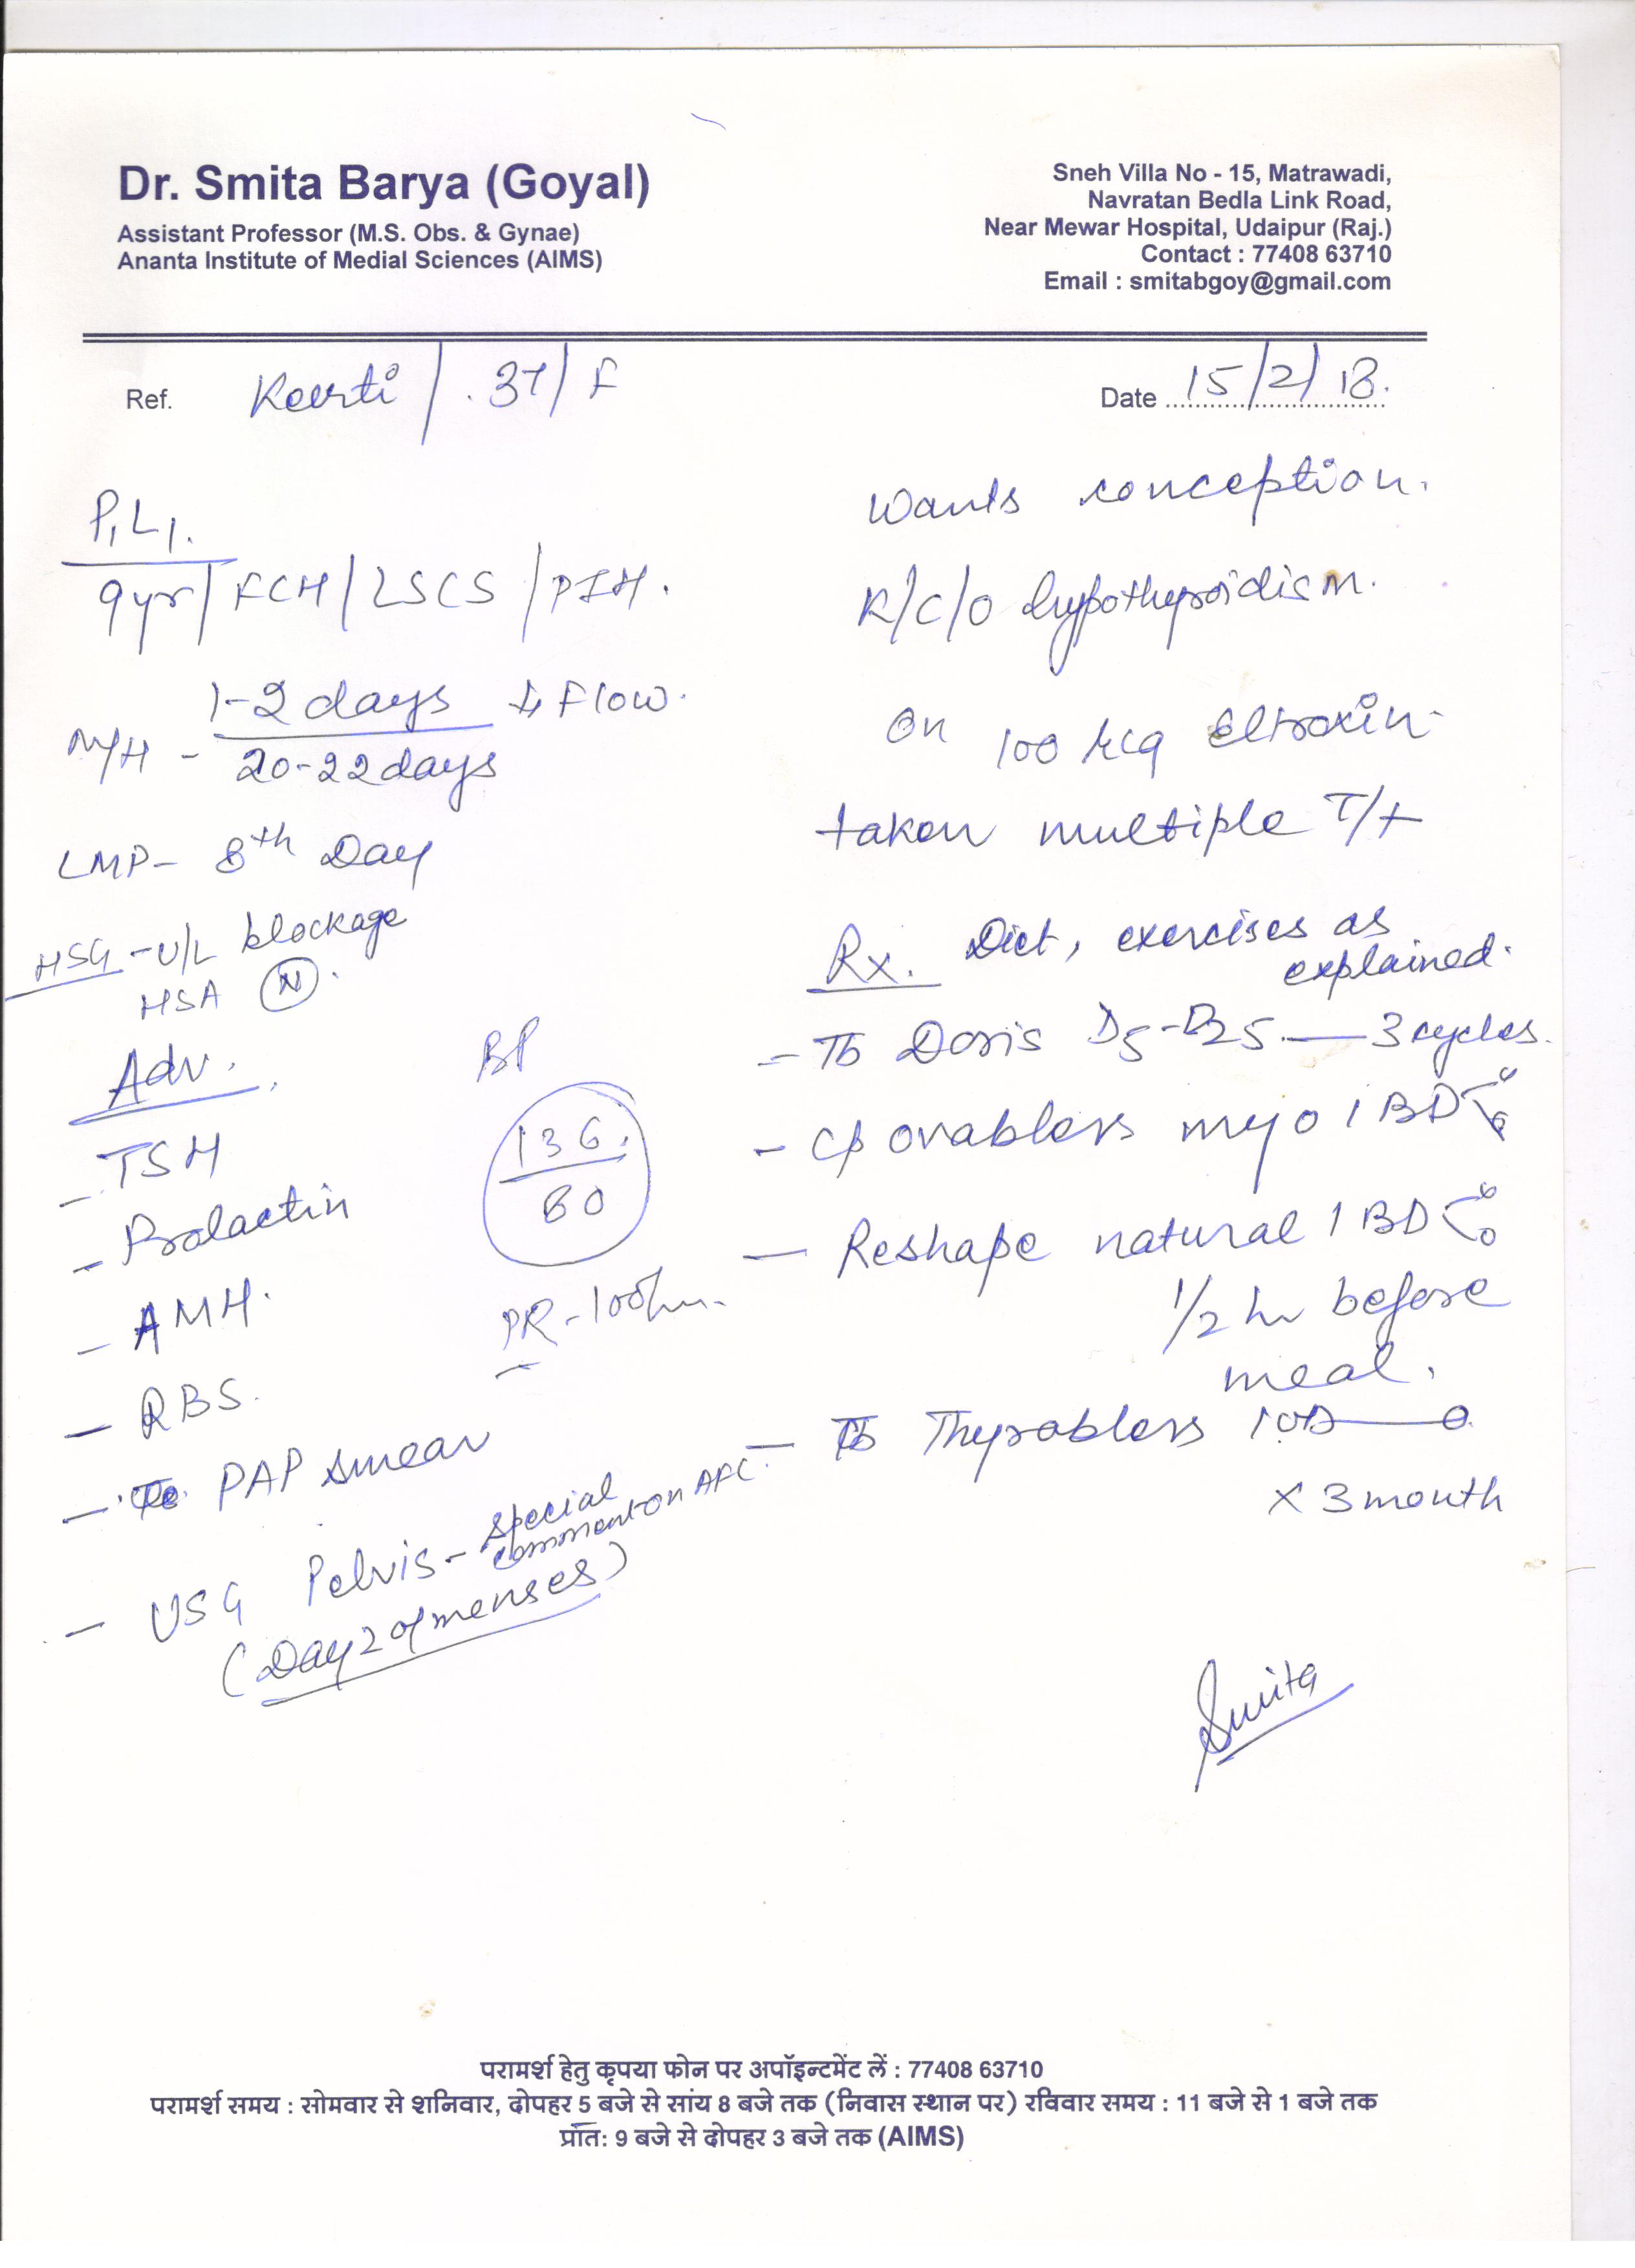 Dr. Smita Barya (Goyal)
Assistant Professor (M.S. Obs. & Gynae)
Ananta Institute of Medial Sciences (AIMS)
Sneh Villa No - 15, Matrawadi,
Navratan Bedla Link Road,
Near Mewar Hospital, Udaipur (Raj.)
Contact : 77408 63710
Email : smitabgoy@gmail.com
Ref. / 37/ F
Date 15/2/18.
P1L1.
9yr/ FCH/ LSCS / PIH.
M/H - 1-2 days ↓ Flow.
20-22 days
LMP- 8th Day
HSG - U/L blockage
HSA (N).
Adv.
- TSH
- Prolactin
- AMH.
- RBS.
- PAP smear
- USG Pelvis - special comment on AFC.
(Day 2 of menses)
BP
136
80
PR - 100/m.
Wants conception.
K/C/O hypothyroidism.
On 100 mcg eltroxin.
taken multiple T/t
Rx. Diet, exercises as
explained.
- Tb Doris D5-D25 — 3 cycles.
- Cp ovabless myo 1 BD
- Reshape natural 1 BD
1/2 hr before
meal.
- Tb Thyrobless 1 OD
x 3 month
Smita
परामर्श हेतु कृपया फोन पर अपॉइन्टमेंट लें : 77408 63710
परामर्श समय : सोमवार से शनिवार, दोपहर 5 बजे से सांय 8 बजे तक (निवास स्थान पर) रविवार समय : 11 बजे से 1 बजे तक
प्रॉत: 9 बजे से दोपहर 3 बजे तक (AIMS)